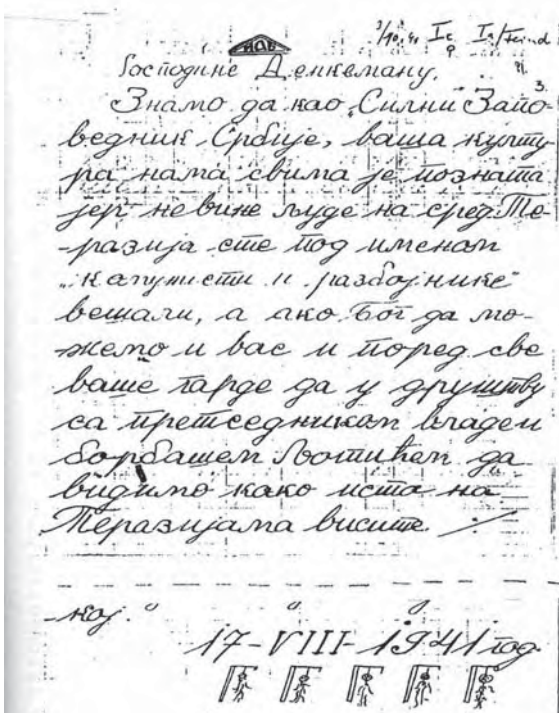 3/10.41 Ic Ia/Feind
НОВ
Господине Денкеману,
3.
Знамо да као „Силни Запо-
ведник Србије, ваша култу-
ра, нама свима је позната
јер невине људе на сред Те-
-разија сте под именом
„капунисти и разбојнике“
вешали, а ако Бог да мо-
жемо и вас и поред све
ваше гарде да у друштву
са претседником владеи
борбашем Љотићем да
видимо како иста на
Теразијама висите.
кој.
17-VIII-1941 год.